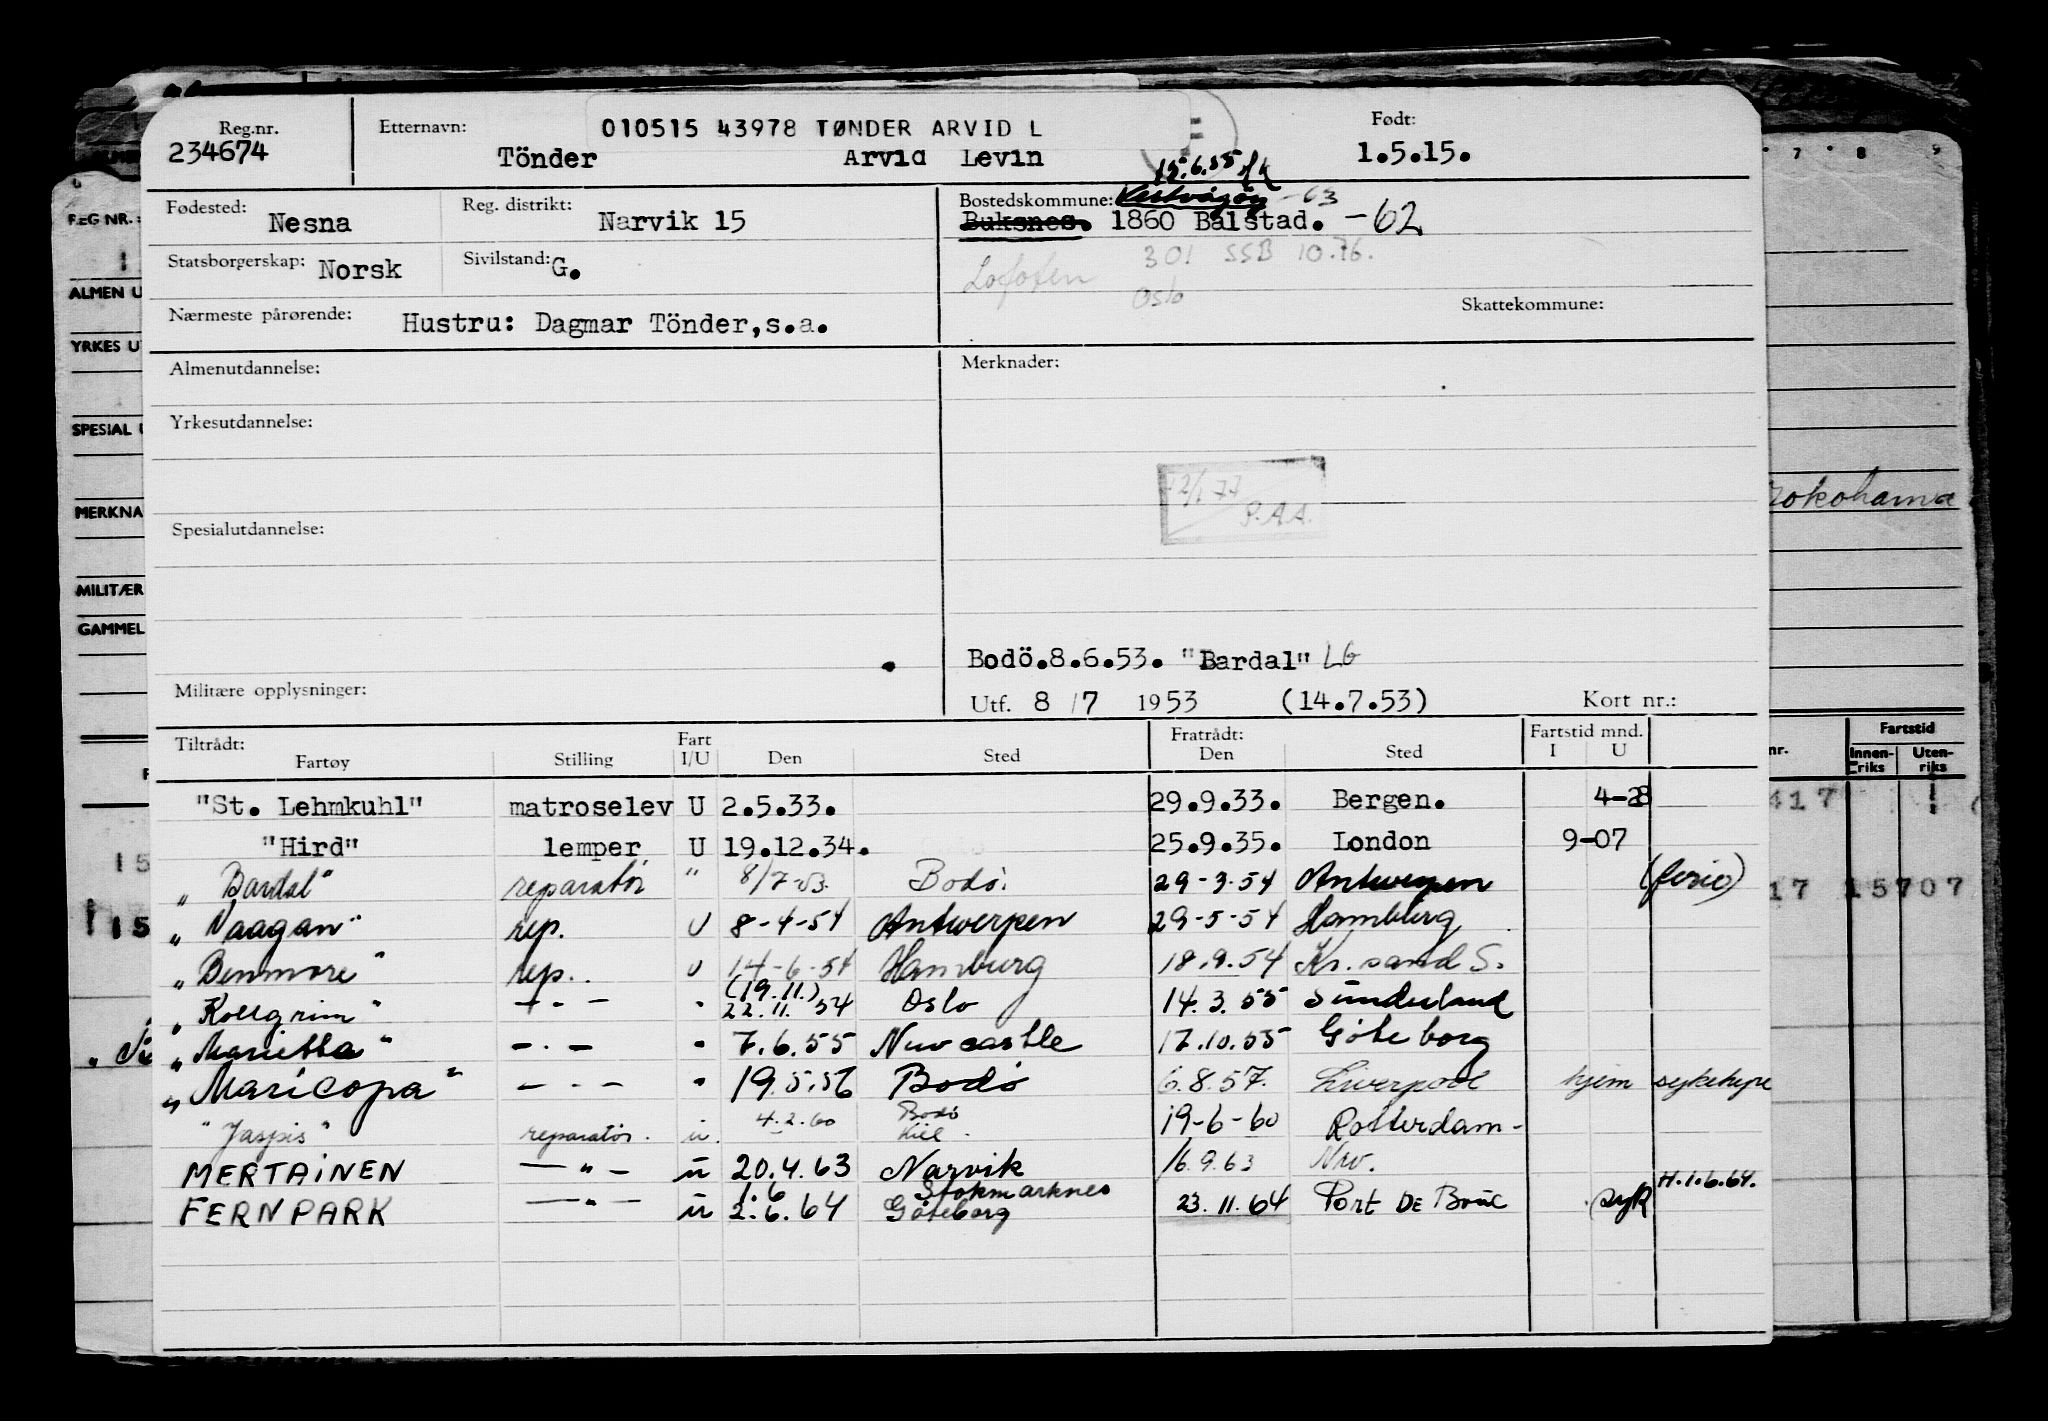 Reg.nr. 234674 Etternavn: 010515 43978 TØNDER ARVID L Født:
Tönder Arvid Levin 1.5.15.
15.6.55
Fødested: Nesna Reg. distrikt: Narvik 15 Bostedskommune: Vestvågöy -63
Buksnes. 1860 Balstad. -62
Statsborgerskap: Norsk Sivilstand: G. Lofoten 301 SSB 10.76.
Oslo
Nærmeste pårørende: Hustru: Dagmar Tönder, s.a. Skattekommune:
Almenutdannelse: Merknader:
Yrkesutdannelse:
12/1 77
P.A.A.
Spesialutdannelse:
Bodö.8.6.53. "Bardal" LG
Militære opplysninger: Utf. 8/7 1953 (14.7.53) Kort nr.:
Tiltrådt: Fartøy Stilling Fart I/U Den Sted Fratrådt: Den Sted Fartstid mnd. I U
"St. Lehmkuhl" matroselev U 2.5.33. 29.9.33. Bergen. 4-28
"Hird" lemper U 19.12.34. 25.9.35. London 9-07
"Bardal" reparatör " 8/7-53. Bodö. 29-3-54 Antwerpen (ferie)
"Vaagan" rep. U 8-4-54 Antwerpen 29-5-54 Hamburg
"Benmore" rep. U 14-6-54 Hamburg 18.9.54 Kr.sand S.
"Kollgrim" -"- " (19.11.) 22.11.54 Oslo 14.3.55 Sunderland
"Marietta" -"- " 7.6.55 Newcastle 17.10.55 Göteborg
"Maricopa" -"- " 19.5.56 Bodö 6.8.57. Liverpool hjem
"Jaspis" reparatör. u. 4.2.60 Bodö Kiel. 19-6-60 Rotterdam-
MERTAINEN -"- u 20.4.63 Narvik 16.9.63 Nrv.
FERNPARK -"- u 1.6 2.6.64 Stokmarknes Göteborg 23.11.64 Port De Bouc syk H.1.6.64.
REG NR.:
ALMEN U
YRKES U
SPESIAL
MERKNA
MILITÆR
GAMMEL
7 8 9
Yokohama
nr. Fartstid
Innenriks Utenriks
417
17 15707
15
15